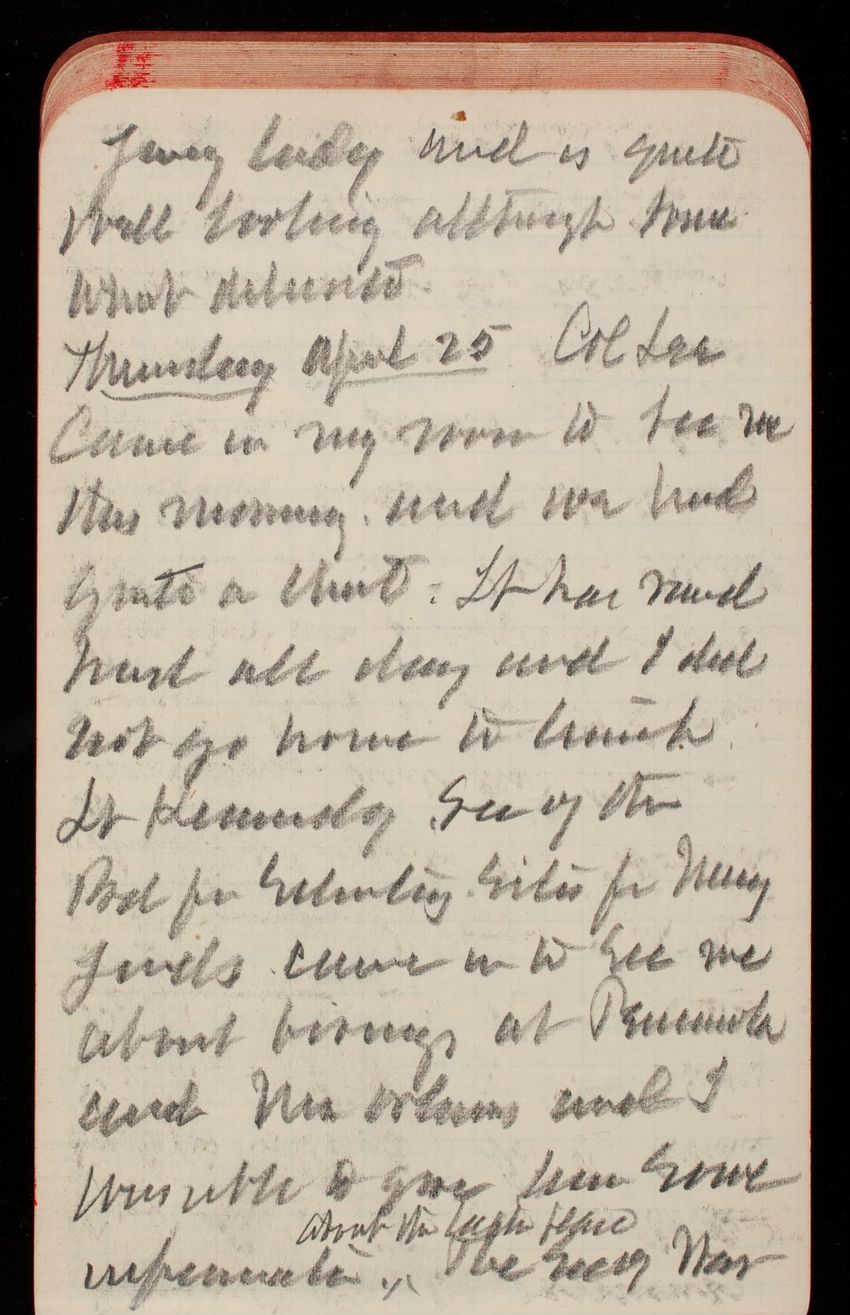 young lady and is quite
well looking although some
what delicate.
Thursday April 25 Col Lee
came in my room to see me
this morning. and we had
quite a chat. It has raind
hard all day and I did
not go home to lunch.
Lt Kennedy Sec of the
Bd for Selecting Sites for Navy
Yards came in to see me
about borings at Pensacola
and New Orleans and I
was able to give him some
about the latter place
information. The Secy War